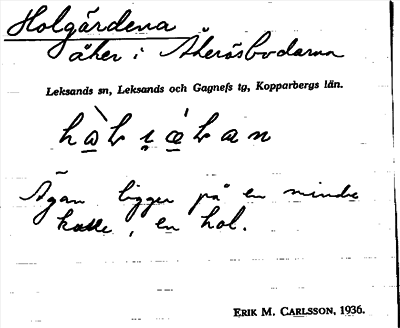 Holgärdena
åker i Åkerösbodarna
Leksands sn, Leksands och Gagnefs tg, Kopparbergs län.
Ägan ligger på en mindre
kulle, en hol.
ERIK M. CARLSSON, 1936.